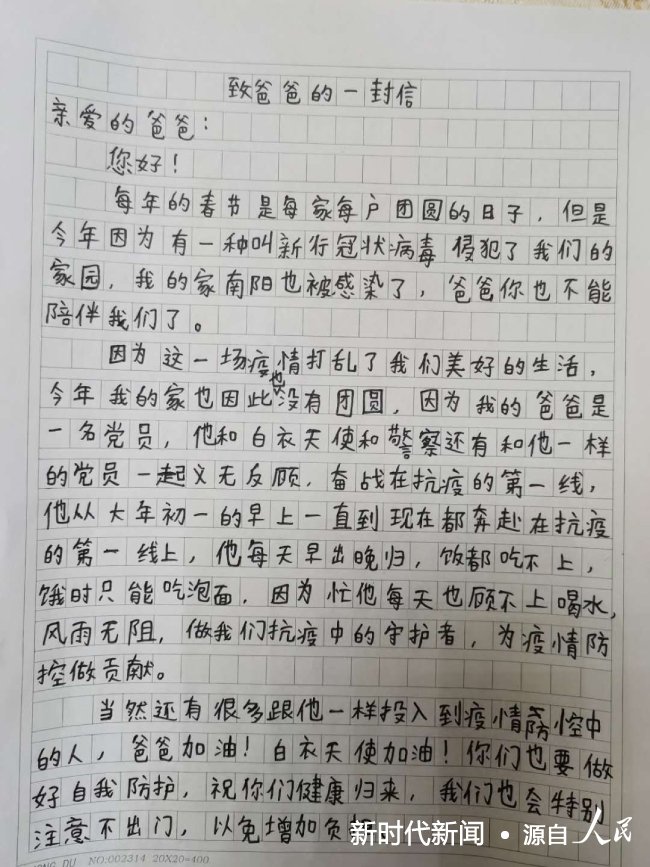 致爸爸的一封信
亲爱的爸爸：
您好！
每年的春节是每家每户团圆的日子，但是
今年因为有一种叫新行冠状病毒侵犯了我们的
家园，我的家南阳也被感染了，爸爸你也不能
陪伴我们了。
因为这一场疫情打乱了我们美好的生活，
今年我的家也因此也没有团圆，因为我的爸爸是
一名党员，他和白衣天使和警察还有和他一样
的党员一起义无反顾，奋战在抗疫的第一线，
他从大年初一的早上一直到现在都奔赴在抗疫
的第一线上，他每天早出晚归，饭都吃不上，
饿时只能吃泡面，因为忙他每天也顾不上喝水，
风雨无阻，做我们抗疫中的守护者，为疫情防
控做贡献。
当然还有很多跟他一样投入到疫情防控中
的人，爸爸加油！白衣天使加油！你们也要做
好自我防护，祝你们健康归来，我们也会特别
注意不出门，以免增加负
新时代新闻·源自人民
DU NO:002314 20X20=400